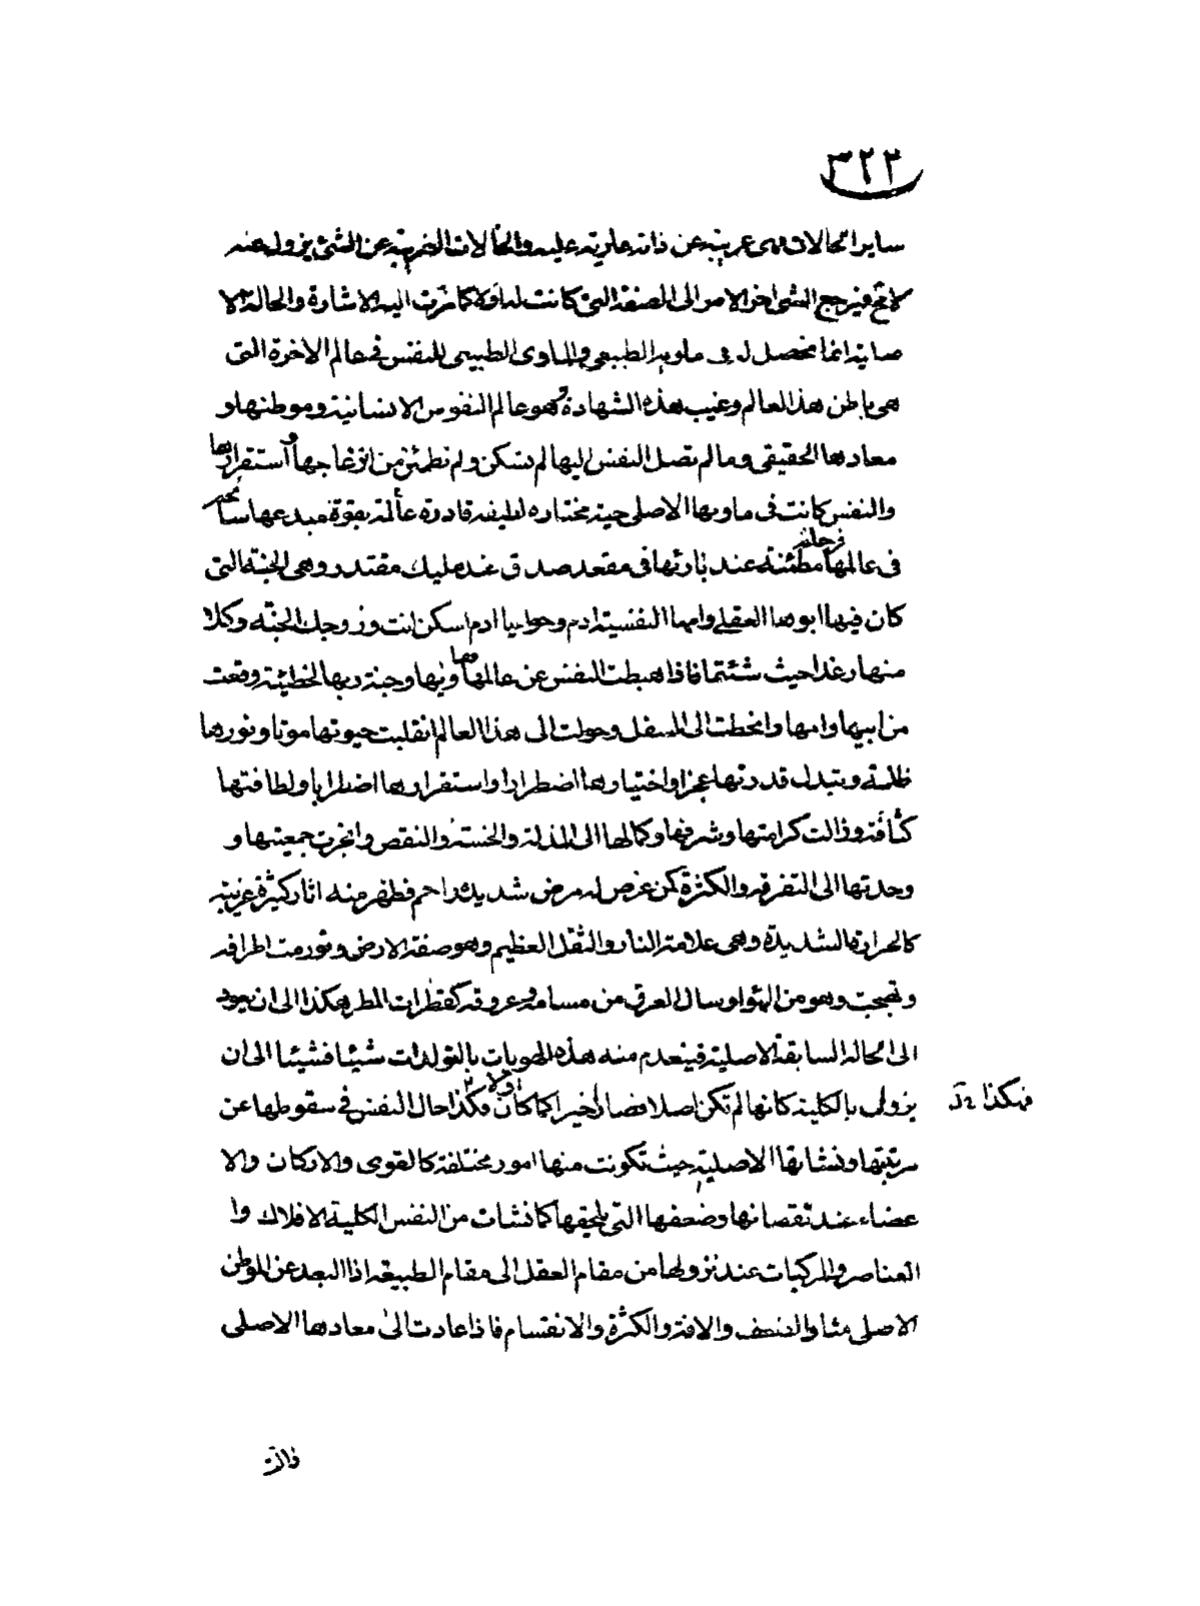 ٣٢٣
ساير الحالات فهى غريبة عن ذاته عارية عليه والحالات الغريبة عن الشئ يزول عنه
لا مح فيرجع الشئ اخر الامر الى الصفة التى كانت له اولا كما مرت اليه الاشارة والحالة الا
صلية انما تحصل له فى ماويه الطبيعى والماوى الطبيعى للنفس فى عالم الاخرة التى
هى باطن هذا العالم وغيب هذه الشهادة وهو عالم النفوس الانسانية وموطنها و
معادها الحقيقى وما لم تصل النفس اليها لم تسكن ولم تطمئن من انزعاجها و استقرارها
والنفس كانت فى ماويها الاصلى حية مختارة لطيفة قادرة عالمة بقوة مبدعها سائحة
فى عالمها فرحانة مطمئنة عند بارئها فى مقعد صدق عند مليك مقتدر وهى الجنة التى
كان فيها ابوها العقلى وامها النفسية ادم وحوا يا ادم اسكن انت وزوجك الجنة وكلا
منها رغدا حيث شئتما فاذا هبطت النفس عن عالمها وفيها وجنة ربها لخطيئة وقعت
من ابيها وامها وانحطت الى السفل وحولت الى هذا العالم انقلبت حيوتها موتا ونورها
ظلمة وتبدل قدرتها عجزا واختيارها اضطرارا واستقرارها اضطرابا ولطافتها
كثافة وزالت كرامتها وشرفها وكمالها الى المذلة والخسة والنقص وانجرت جمعيتها و
وحدتها الى التفرقة والكثرة كمن عرض له مرض شديد مزاحم فظهر منه اثار كثيرة غريبة
كالحرارة الشديدة وهى علامة النار والثقل العظيم وهو صفة الارض وتورمت اطرافه
وتهيجت وهو من الهواء وسال العرق من مسامه وعروقه كقطرات المطر هكذا الى ان يعود
الى الحالة السابقة الاصلية فينعدم منه هذه الهويات بالتولدات شيئا فشيئا الى ان
يزول بالكلية كانها لم تكن اصلا فصار اخيرا كما كان اولا فكذا حال النفس فى سقوطها عن
فهكذا خ ل
مرتبتها ونشاتها الاصلية حيث تكونت منها امور مختلفة كالقوى والاركان والا
عضاء عند نقصانها وضعفها التى يلحقها كما نشات من النفس الكلية الافلاك وا
لعناصر والمركبات عند نزولها من مقام العقل الى مقام الطبيعة اذا البعد عن الموطن
الاصلى منشا والضعف والافة والكثرة والانقسام فاذا عادت الى معادها الاصلى
زالت